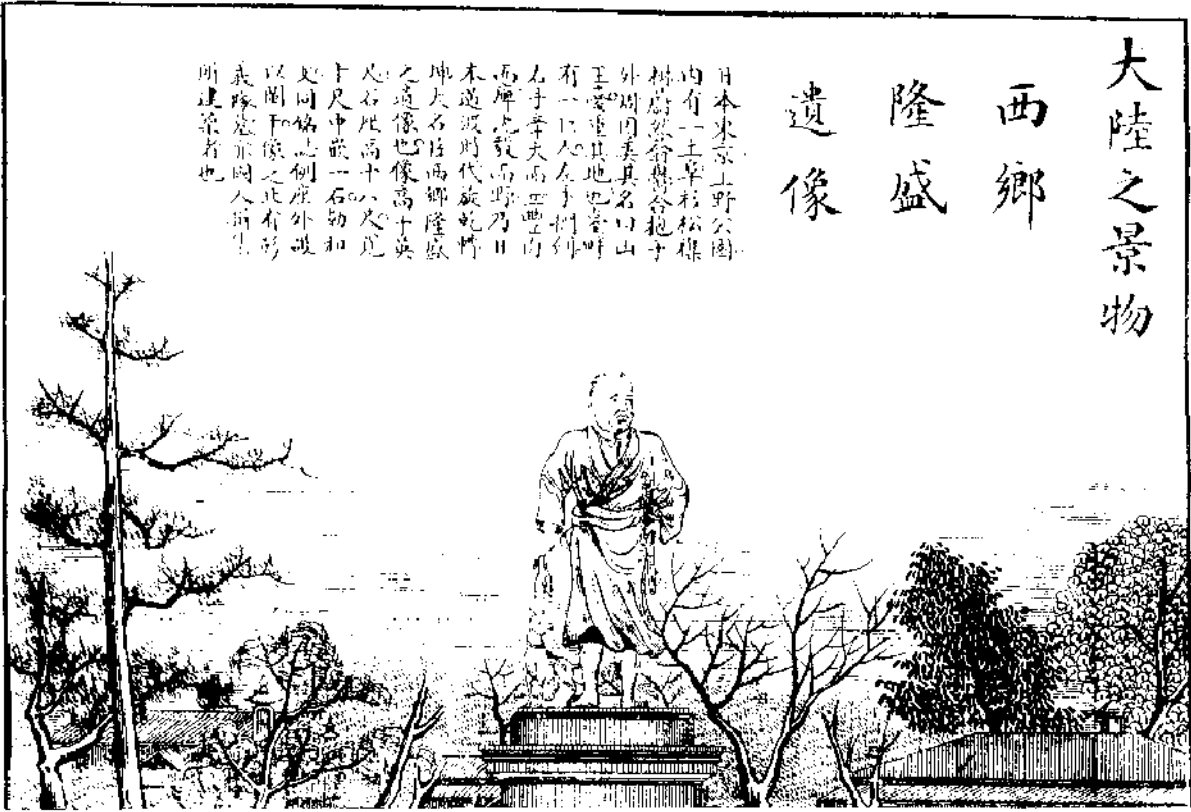 大陸之景物
西鄉
隆盛
遺像
日本東京上野公園
內有一土阜杉松雜
樹蔚然蓊鬱合抱于
外周因美其名曰山
王臺蓋其地也臺畔
有一巨人左手捫劍
右手牽犬而立豐肉
而野乃日
本過渡時代旋乾轉
坤大名臣西鄉隆盛
之遺像也像高十英
尺石座高十八尺寬
十尺中嵌一石勒和
文同銘記例座外護
以闌干像之北有彰
義隊墓亦國人
所建築者也